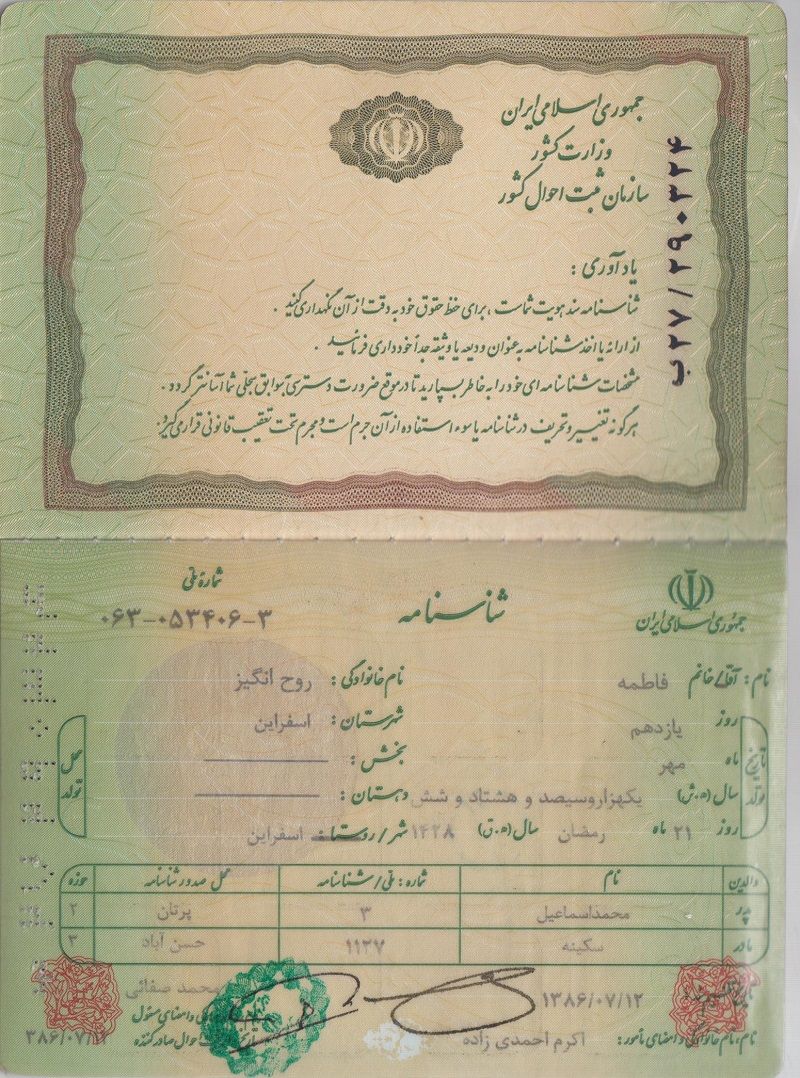 جمهوری اسلامی ایران
وزارت کشور
سازمان ثبت احوال کشور
ب۲۷/۲۹۰۳۲۴
یادآوری :
شناسنامه سند هویت شماست ، برای حفظ حقوق خود به دقت از آن نگهداری کنید .
از ارائه یا اخذ شناسنامه به عنوان ودیعه یا وثیقه جداً خودداری فرمائید .
مشخصات شناسنامه ای خود را به خاطر بسپارید تا در موقع ضرورت دسترسی به سوابق سجلی شما آسانتر گردد .
هرگونه تغییر و تحریف در شناسنامه یا سوء استفاده از آن جرم است و مجرم تحت تعقیب قانونی قرار می گیرد .
جمهوری اسلامی ایران
شناسنامه
شماره ملی
۰۶۳-۰۵۳۴۰۶-۳
نام : آقا/خانم فاطمه نام خانوادگی : روح انگیز
تاریخ تولد
روز یازدهم شهرستان : اسفراین
ماه مهر بخش :
سال (ه.ش) یکهزاروسیصد و هشتاد و شش دهستان :
روز ۲۱ ماه رمضان سال (ه.ق) ۱۴۲۸ شهر/روستا : اسفراین
محل تولد
والدین نام شماره : ملی/شناسنامه محل صدور شناسنامه حوزه
پدر محمداسماعیل ۳ پرتان ۲
مادر سکینه ۱۱۲۷ حسن آباد ۳
۱۳۸۶/۰۷/۱۲ محمد صفائی
نام، نام خانوادگی و امضای مأمور : اکرم احمدی زاده